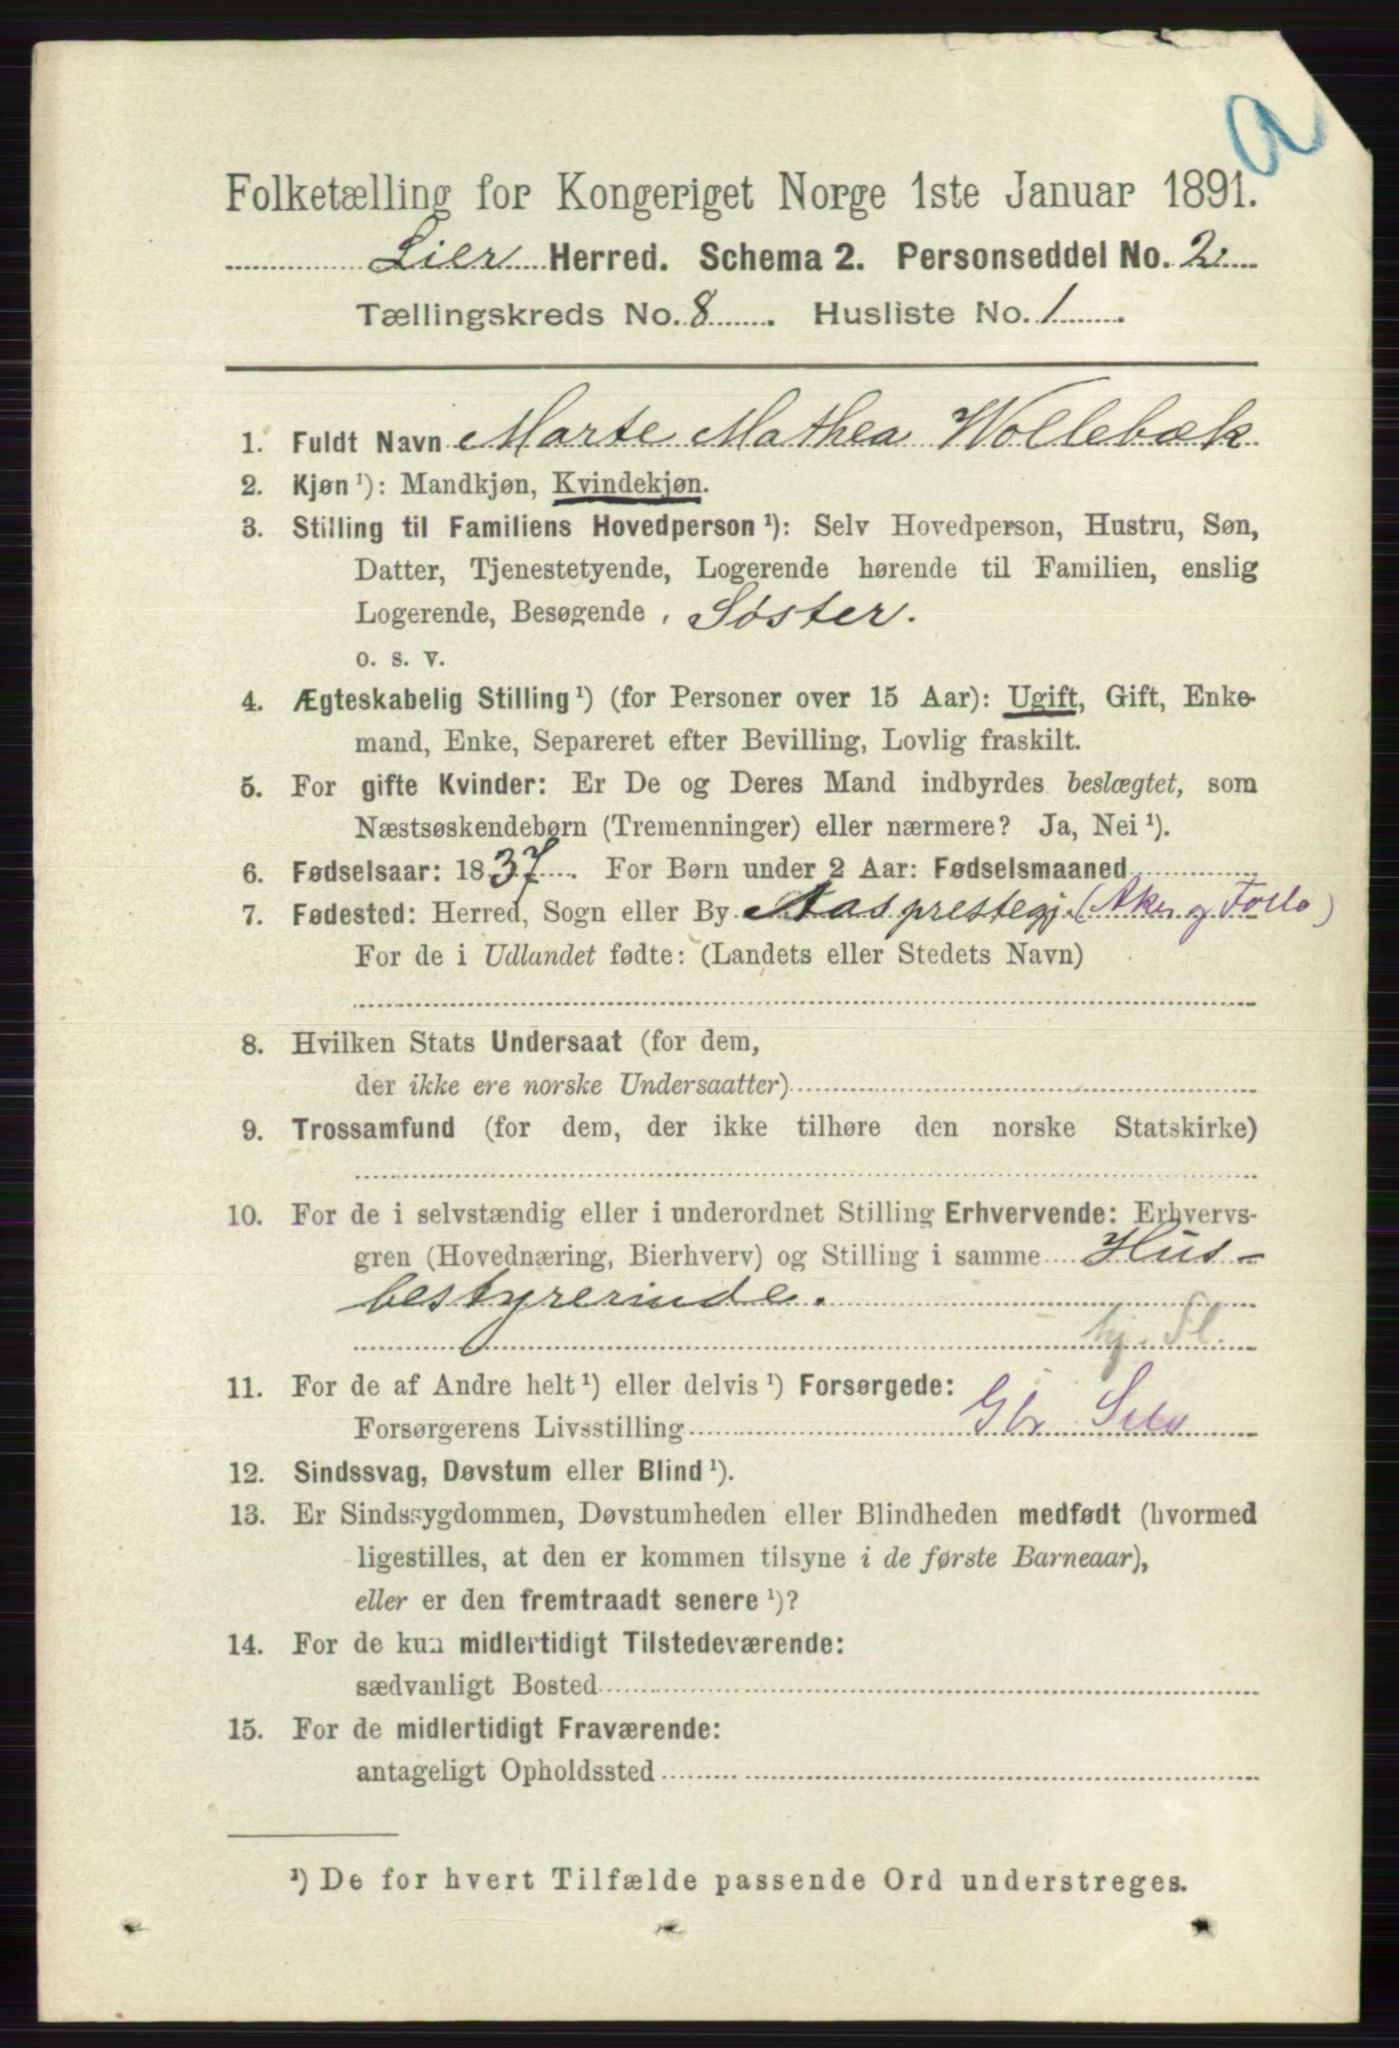 a
Folketælling for Kongeriget Norge 1ste Januar 1891.
Lier Herred. Schema 2. Personseddel No. 2.
Tællingskreds No. 8. Husliste No. 1.
1. Fuldt Navn Marte Mathea Wollebæk
2. Kjøn ¹): Mandkjøn, Kvindekjøn.
3. Stilling til Familiens Hovedperson ¹): Selv Hovedperson, Hustru, Søn,
Datter, Tjenestetyende, Logerende hørende til Familien, enslig
Logerende, Besøgende . Søster.
o. s. v.
4. Ægteskabelig Stilling ¹) (for Personer over 15 Aar): Ugift, Gift, Enke-
mand, Enke, Separeret efter Bevilling, Lovlig fraskilt.
5. For gifte Kvinder: Er De og Deres Mand indbyrdes beslægtet, som
Næstsøskendebørn (Tremenninger) eller nærmere? Ja, Nei ¹).
6. Fødselsaar: 1837. For Børn under 2 Aar: Fødselsmaaned
7. Fødested: Herred, Sogn eller By Aas prestegj. (Aker og Follo)
For de i Udlandet fødte: (Landets eller Stedets Navn)
8. Hvilken Stats Undersaat (for dem,
der ikke ere norske Undersaatter)
9. Trossamfund (for dem, der ikke tilhøre den norske Statskirke)
10. For de i selvstændig eller i underordnet Stilling Erhvervende: Erhvervs-
gren (Hovednæring, Bierhverv) og Stilling i samme Hus-
bestyrerinde.
hj. Sl.
11. For de af Andre helt ¹) eller delvis ¹) Forsørgede:
Forsørgerens Livsstilling Gbr Selv
12. Sindssvag, Døvstum eller Blind ¹).
13. Er Sindssygdommen, Døvstumheden eller Blindheden medfødt (hvormed
ligestilles, at den er kommen tilsyne i de første Barneaar),
eller er den fremtraadt senere ¹)?
14. For de kun midlertidigt Tilstedeværende:
sædvanligt Bosted
15. For de midlertidigt Fraværende:
antageligt Opholdssted
¹) De for hvert Tilfælde passende Ord understreges.